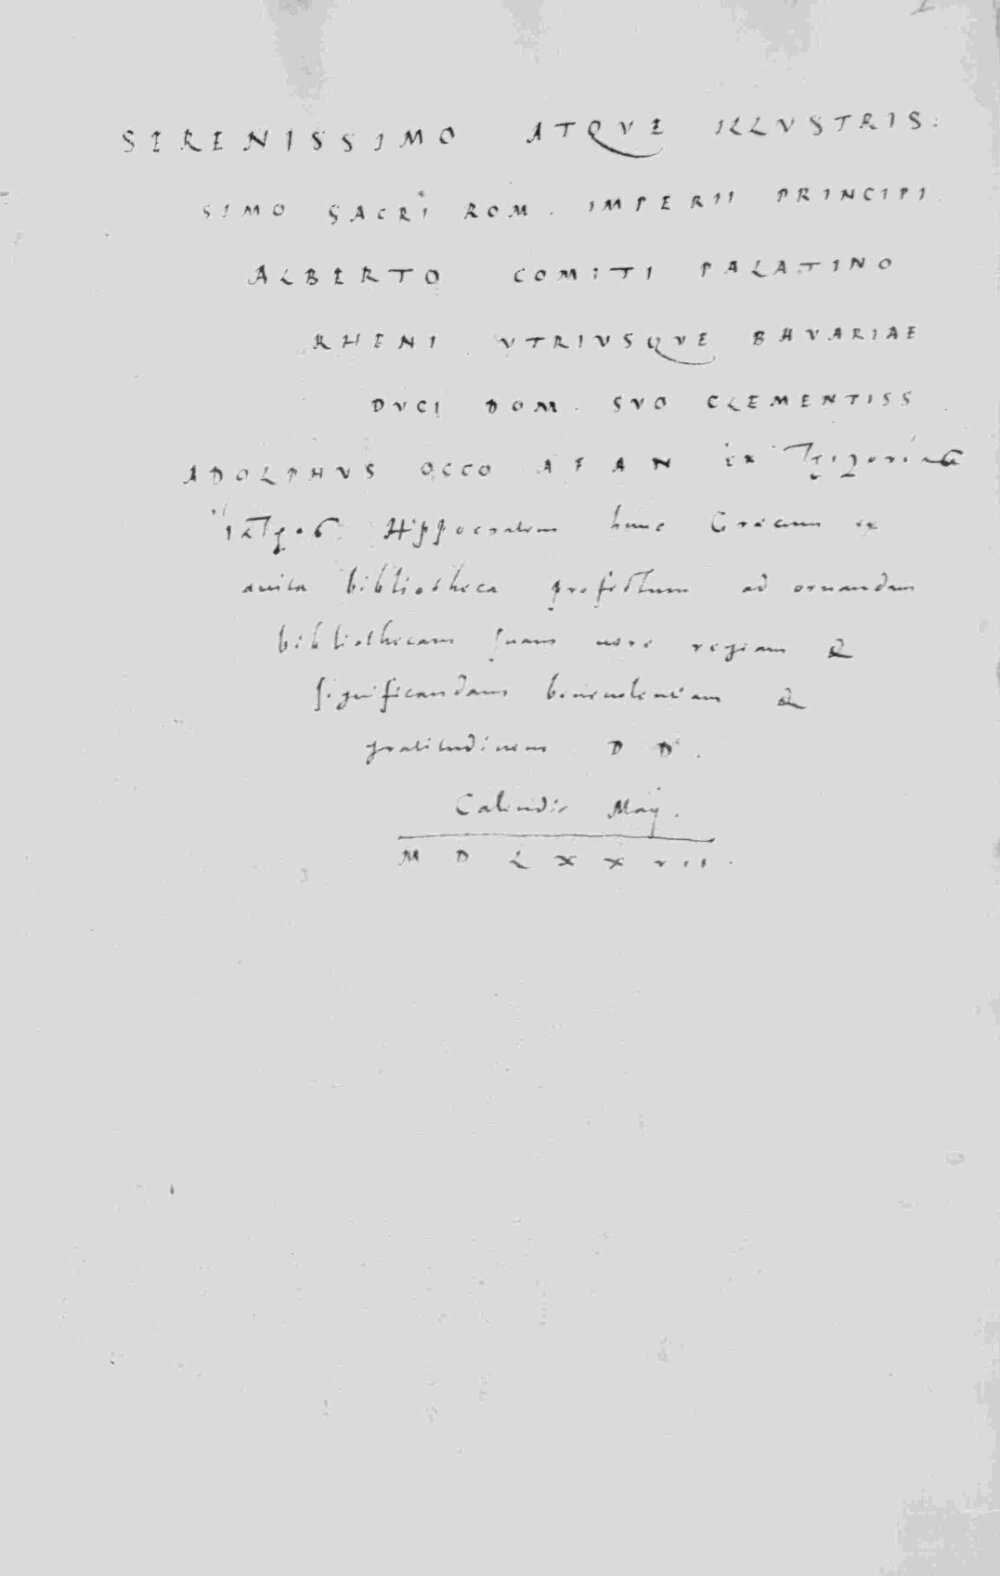 SERENISSIMO ATQVE ILLVSTRIS:
SIMO SACRI ROM. IMPERII PRINCIPI
ALBERTO COMITI PALATINO
RHENI VTRIVSQVE BAVARIAE
DVCI DOM. SVO CLEMENTISS
ADOLPHVS OCCO A F A N
ἰατρὸς Hippocratem hunc Graecum ex
auita bibliotheca profectum ad ornandam
bibliothecam suam uere regiam &
significandam beneuolentiam &
gratitudinem D D.
Calendis Maij.
M D L X X VII.